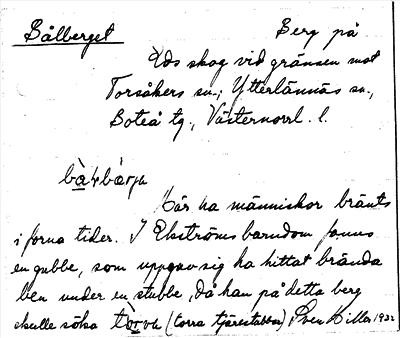 Bålberget
Berg på
Eds skog vid gränsen mot
Torsåkers sn.; Ytterlännäs sn.,
Boteå tg., Västernorrl. l.
Här ha människor bränts
i forna tider. I Ekströms barndom fanns
en gubbe, som uppgav sig ha hittat brända
ben under en stubbe, då han på detta berg
skulle söka (torra tjärstubbar) Sven Hillo 1932